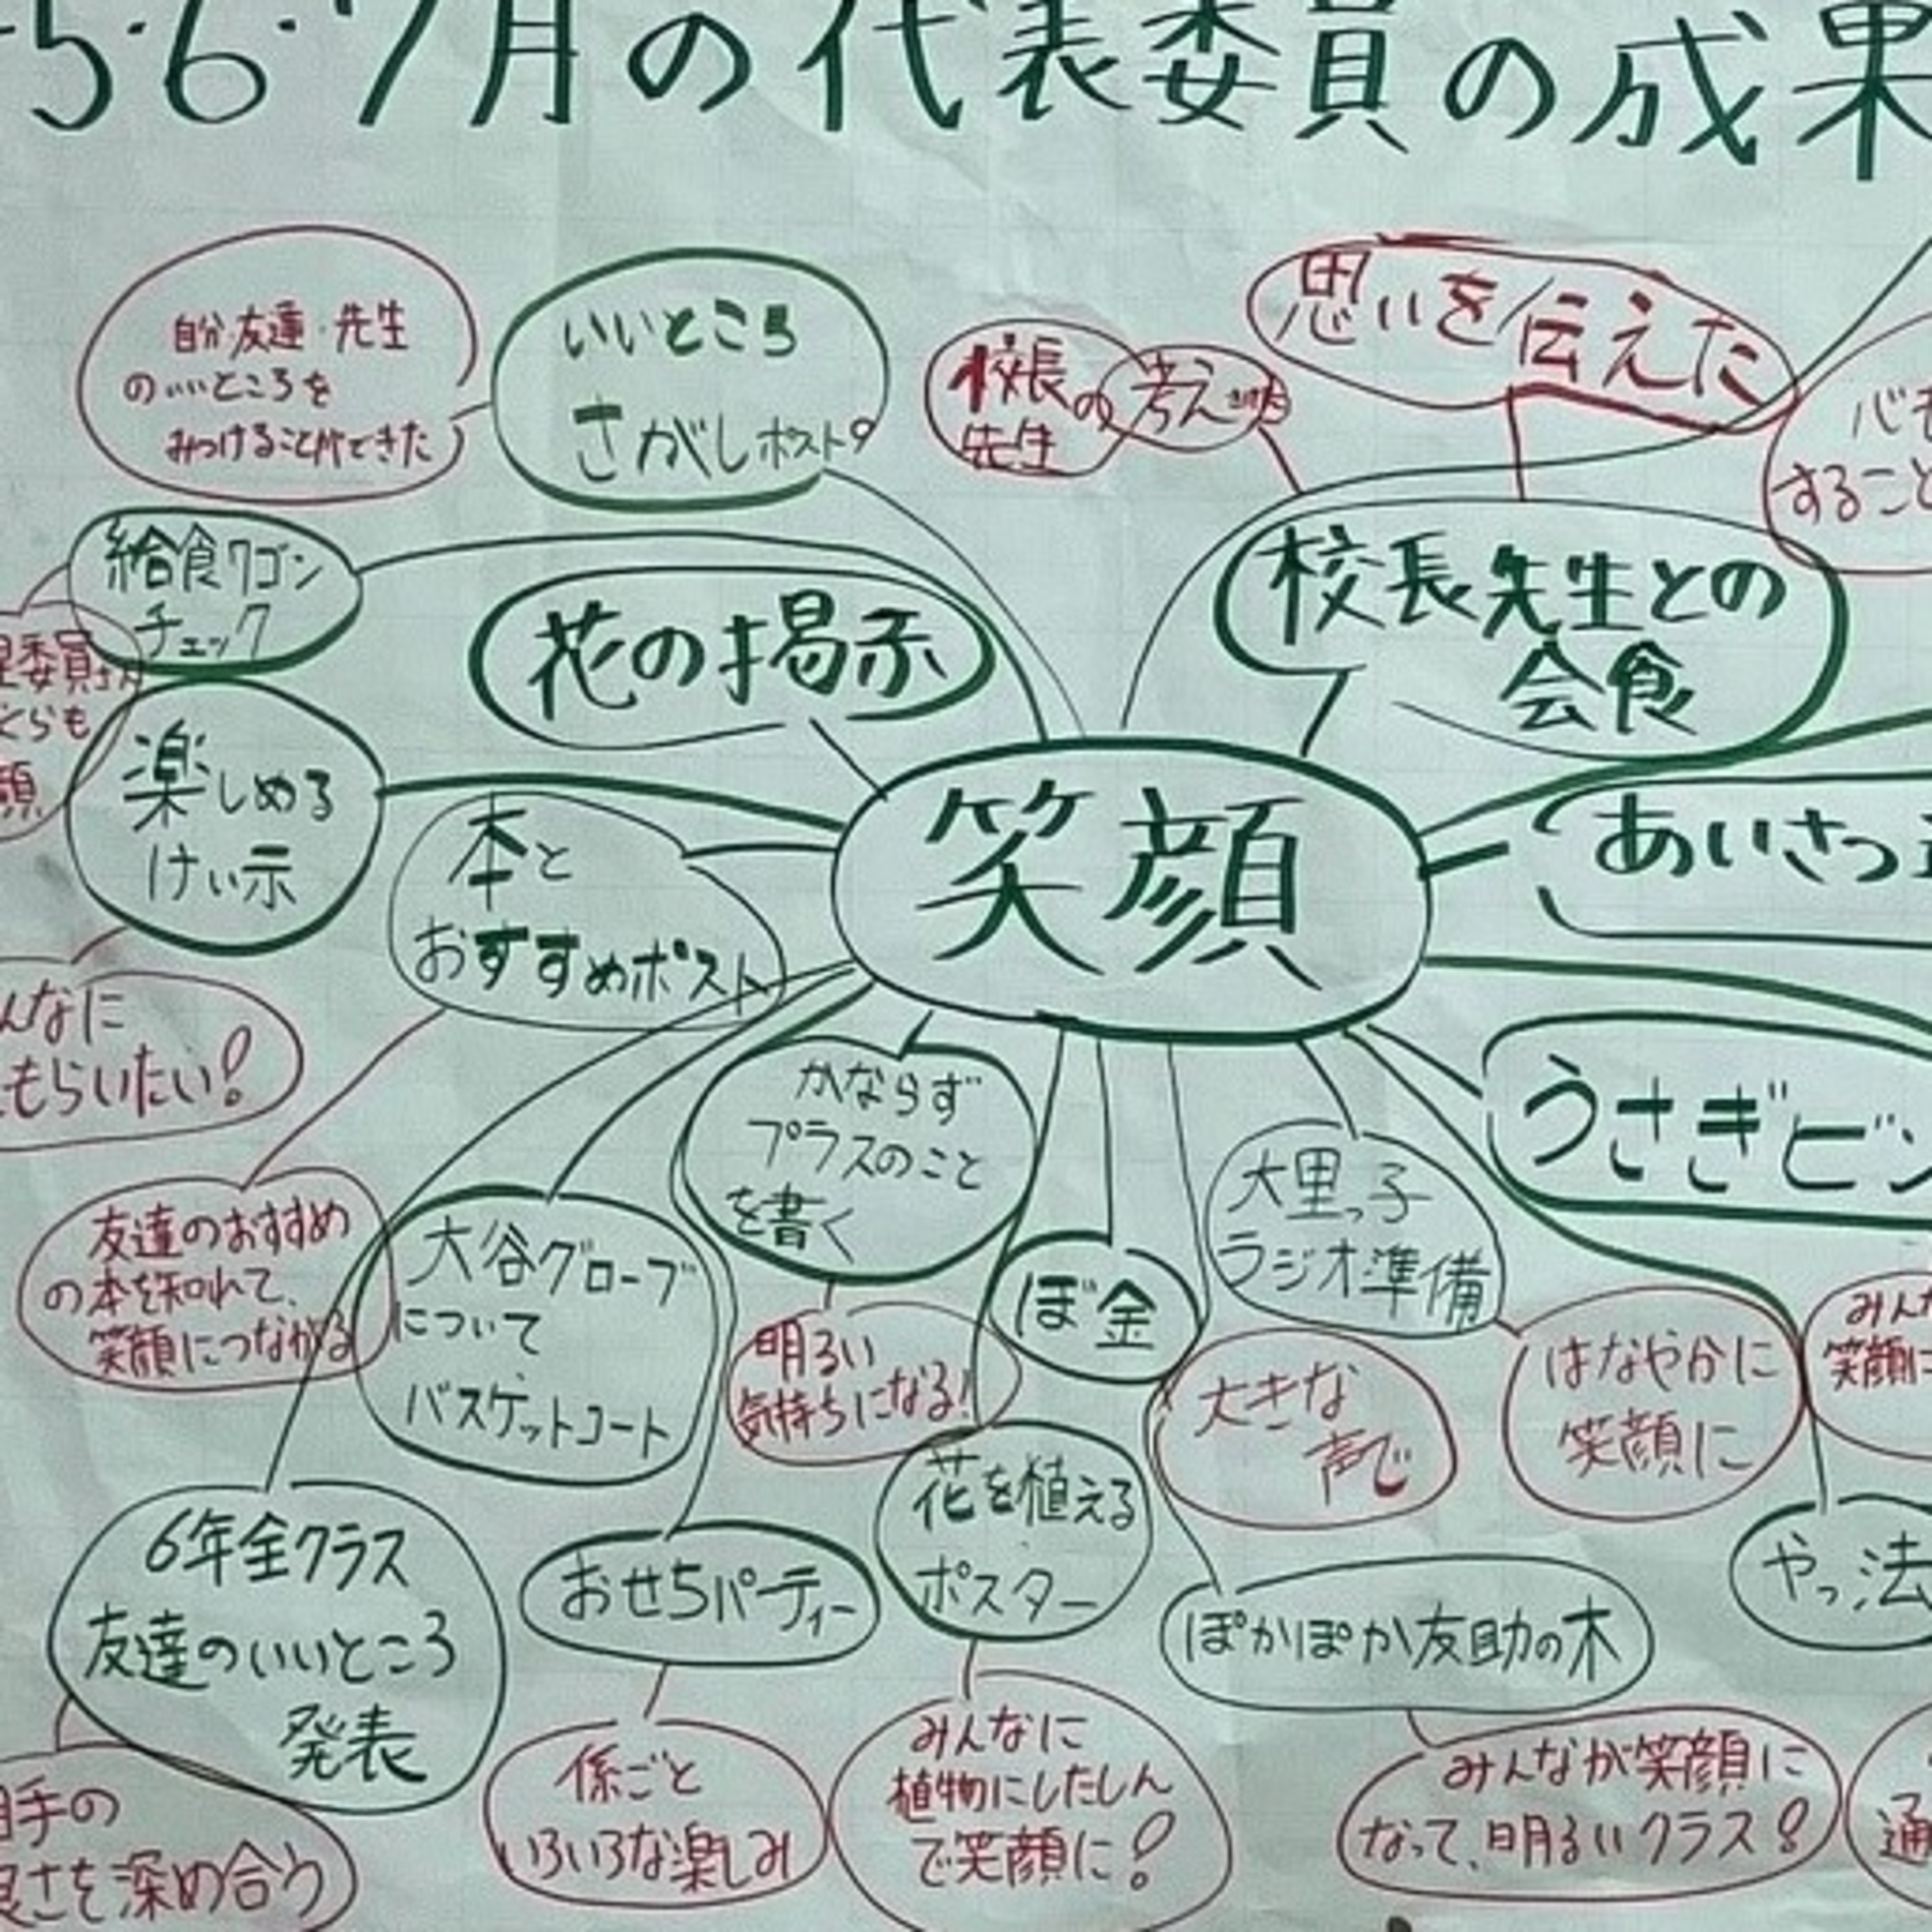 5・6・7月の代表委員の成果
自分・友達・先生
のいいところを
みつけることができた
いいところ
さがしポスト
校長
先生
の
考え
思いを伝えた
すること
給食ワゴン
チェック
花の掲示
校長先生との
会食
楽しめる
けい示
本と
おすすめポスト
笑顔
あいさつ
うさぎビン
んなに
もらいたい!
かならず
プラスのこと
を書く
大里っ子
ラジオ準備
友達のおすすめ
の本を知れて、
笑顔につながる
大谷グローブ
について
バスケットコート
ぼ金
明るい
気持ちになる!
大きな
声で
はなやかに
笑顔に
みんな
笑顔に
6年全クラス
友達のいいところ
発表
おせちパーティー
花を植える
ポスター
ぽかぽか友助の木
やっ法
手の
良さを深め合う
係ごと
いろいろな楽しみ
みんなに
植物にしたしん
で笑顔に!
みんなが笑顔に
なって、明るいクラス!
通